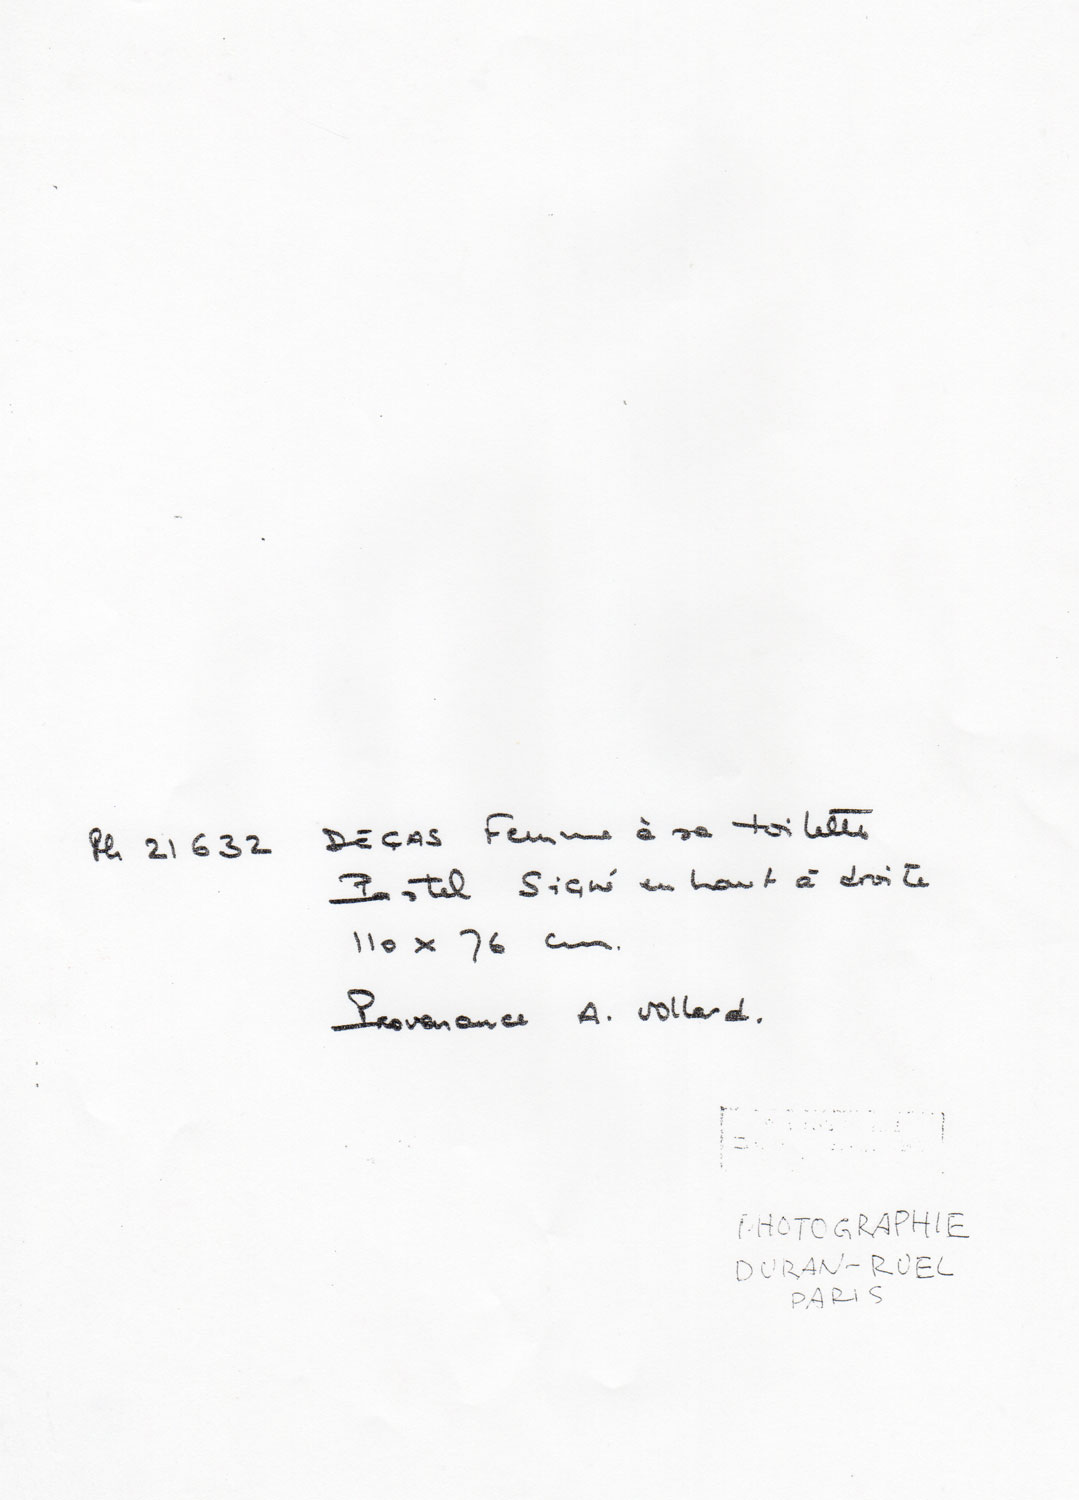 Ph 21632 DEGAS Femme à sa toilette
Pastel Signé en haut à droite
110 x 76 cm.
Provenance A. Vollard.
PHOTOGRAPHIE
DURAN-RUEL
PARIS